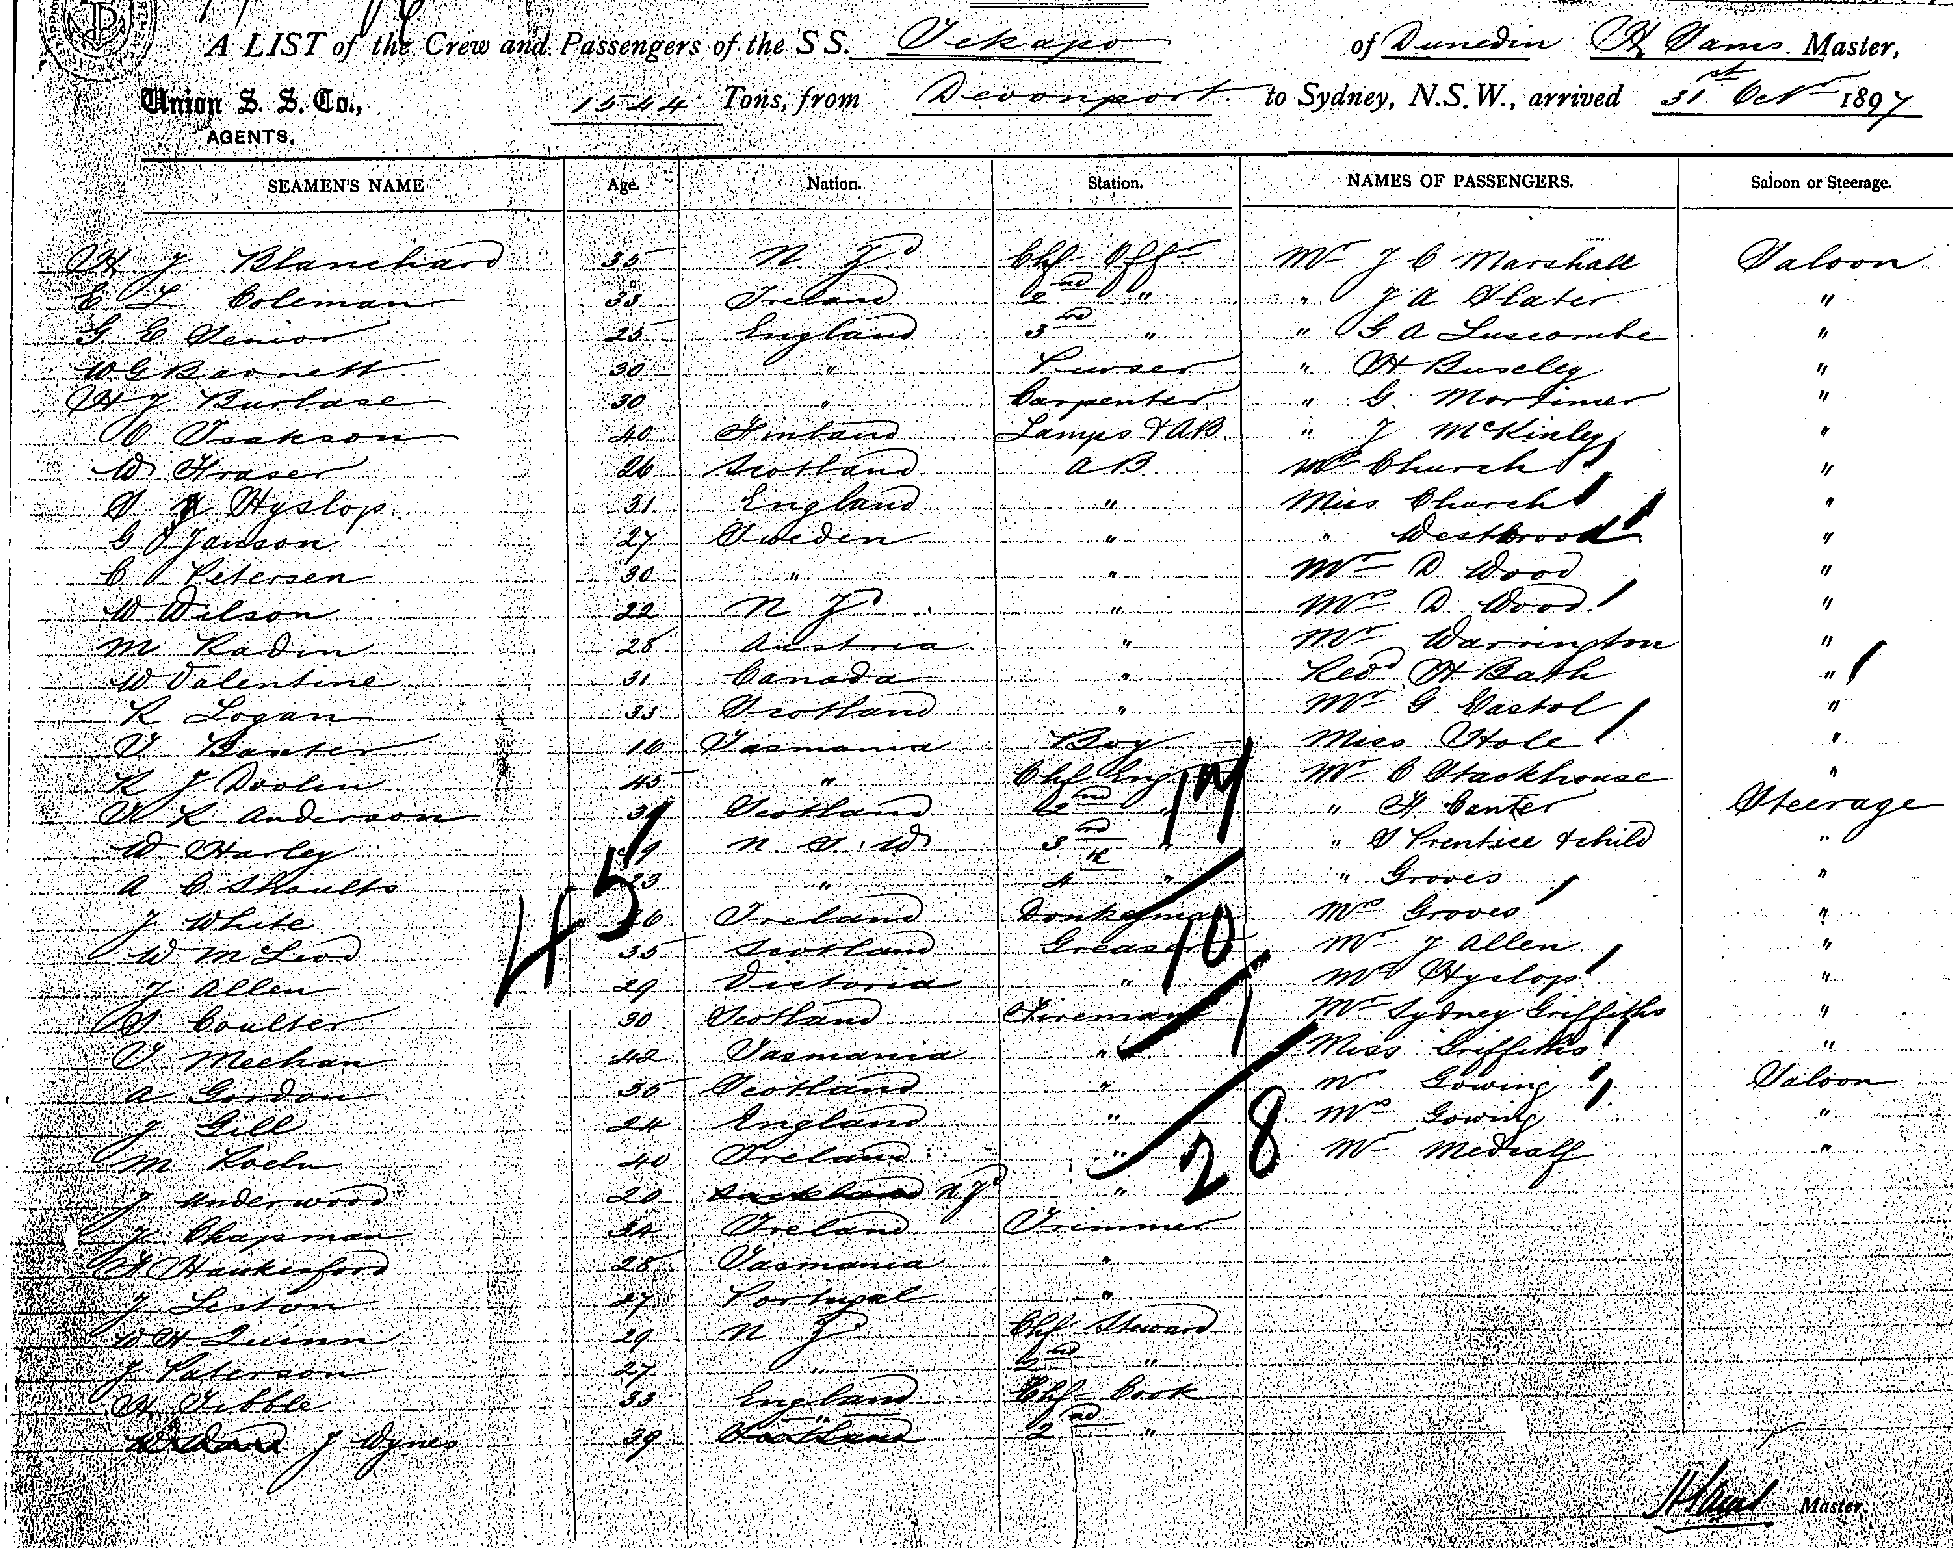 A LIST of the Crew and Passengers of the S S. Tekapo of Dunedin Master,
Union S. S. Co., 1544 Tons, from Devonport to Sydney, N.S.W., arrived 31st Oct 1897
AGENTS.
SEAMEN'S NAME Age. Nation. Station. NAMES OF PASSENGERS. Saloon or Steerage.
H J Blanchard 35 N Zd Chf Offr Mr J C Marshall Saloon
E L Coleman 33 Ireland 2nd " " J A Slater "
G E Senior 25 England 3rd " " G A Luscombe "
W G Barnett 30 " Purser " H Buscley "
H J Burlase 30 " Carpenter " G. Mortimer "
C Isakson 40 Finland Lamps & AB. " J McKinley "
W Fraser 26 Scotland A B. Mrs Church "
S Hyslop 31 England " Miss Church "
G Janson 27 Sweden " " Westbrook "
C Petersen 30 " " Mr D Wood "
W Wilson 22 N Zd " Mrs D Wood "
M Radin 28 Austria " Mr Warrington "
W Valentine 31 Canada " Revd H Bath "
R Logan 33 Scotland " Mr G "
T Banter 16 Tasmania Boy Miss Hole "
R J Doolen 45 " Chf Engr 17 Mr C Stackhouse "
R Anderson Scotland 2nd " " Canter Steerage
W Harley N. S. W 3rd " " S Prentice & child "
A C Skoults 23 " 4th " " Groves "
J White 36 Ireland Donkeyman Mrs Groves "
W McLeod 45 35 Scotland Greaser 10 Mr J Allen "
J Allen 29 Victoria " Mrs Hyslop "
S Coulter 30 Scotland Fireman 1 Mr Sydney Griffiths "
T Meehan 42 Tasmania " Miss Griffiths "
A Gordon 35 Scotland " Mr Gowing Saloon
J Gill 24 England " Mrs Gowing "
M 40 Ireland " 28 Mr Medcalf "
J Underwood 20 N Zd "
J Chapman 34 Ireland Trimmer
F Hawkesford 28 Tasmania "
J Liston 27 Portugal "
W H Quinn 29 N Z Chf Steward
J Paterson 27 " 2nd "
H Tibble 33 England Chf Cook
J Wynes 39 " 2nd "
Master.